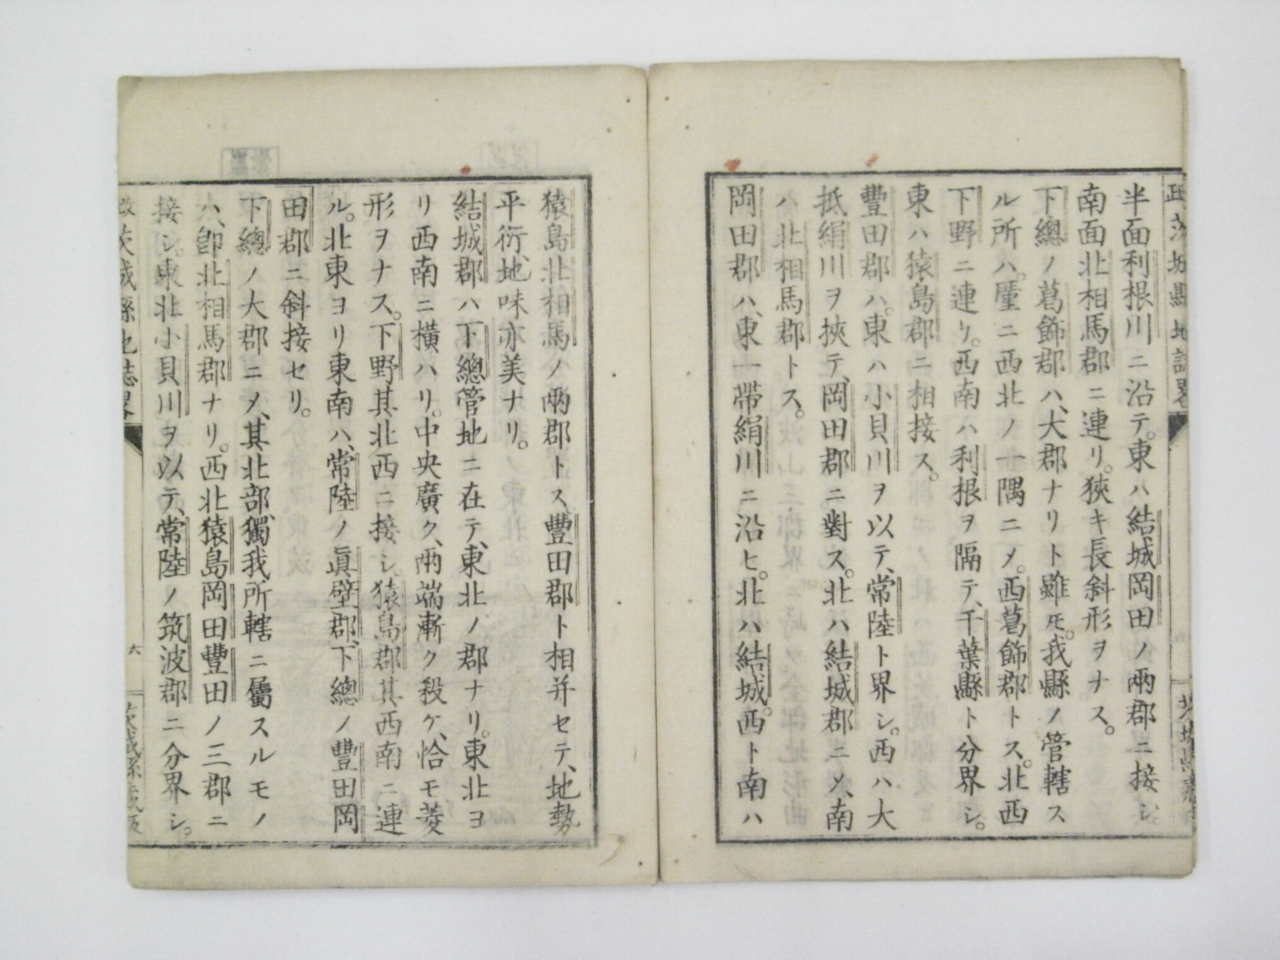 半面利根川ニ沿テ。東ハ結城岡田ノ兩郡ニ接シ。
南面北相馬郡ニ連リ。狹キ長斜形ヲナス。
下總ノ葛飾郡ハ、大郡ナリト雖モ。我縣ノ管轄ス
ル所ハ。廑ニ西北ノ一隅ニメ。西葛飾郡トス。北西
下野ニ連リ。西南ハ利根ヲ隔テ、千葉縣ト分界シ。
東ハ猿島郡ニ相接ス。
豐田郡ハ。東ハ小貝川ヲ以テ、常陸ト界シ。西ハ大
抵絹川ヲ挾テ、岡田郡ニ對ス。北ハ結城郡ニメ、南
ハ北相馬郡トス。
岡田郡ハ、東一帶絹川ニ沿ヒ。北ハ結城。西ト南ハ
猿島北相馬ノ兩郡トス豐田郡ト相并セテ、地勢
平衍、地味亦美ナリ。
結城郡ハ下總管地ニ在テ、東北ノ郡ナリ。東北ヨ
リ西南ニ橫ハリ。中央廣ク、兩端漸ク殺ケ、恰モ菱
形ヲナス。下野其北西ニ接シ。猿島郡其西南ニ連
ル。北東ヨリ東南ハ、常陸ノ眞壁郡、下總ノ豐田岡
田郡ニ斜接セリ。
下總ノ大郡ニメ、其北部、獨我所轄ニ屬スルモノ
ハ、卽北相馬郡ナリ。西北猿島岡田豐田ノ三郡ニ
接シ。東北小貝川ヲ以テ、常陸ノ筑波郡ニ分界シ。
茨城縣地誌畧
六
茨城縣藏版